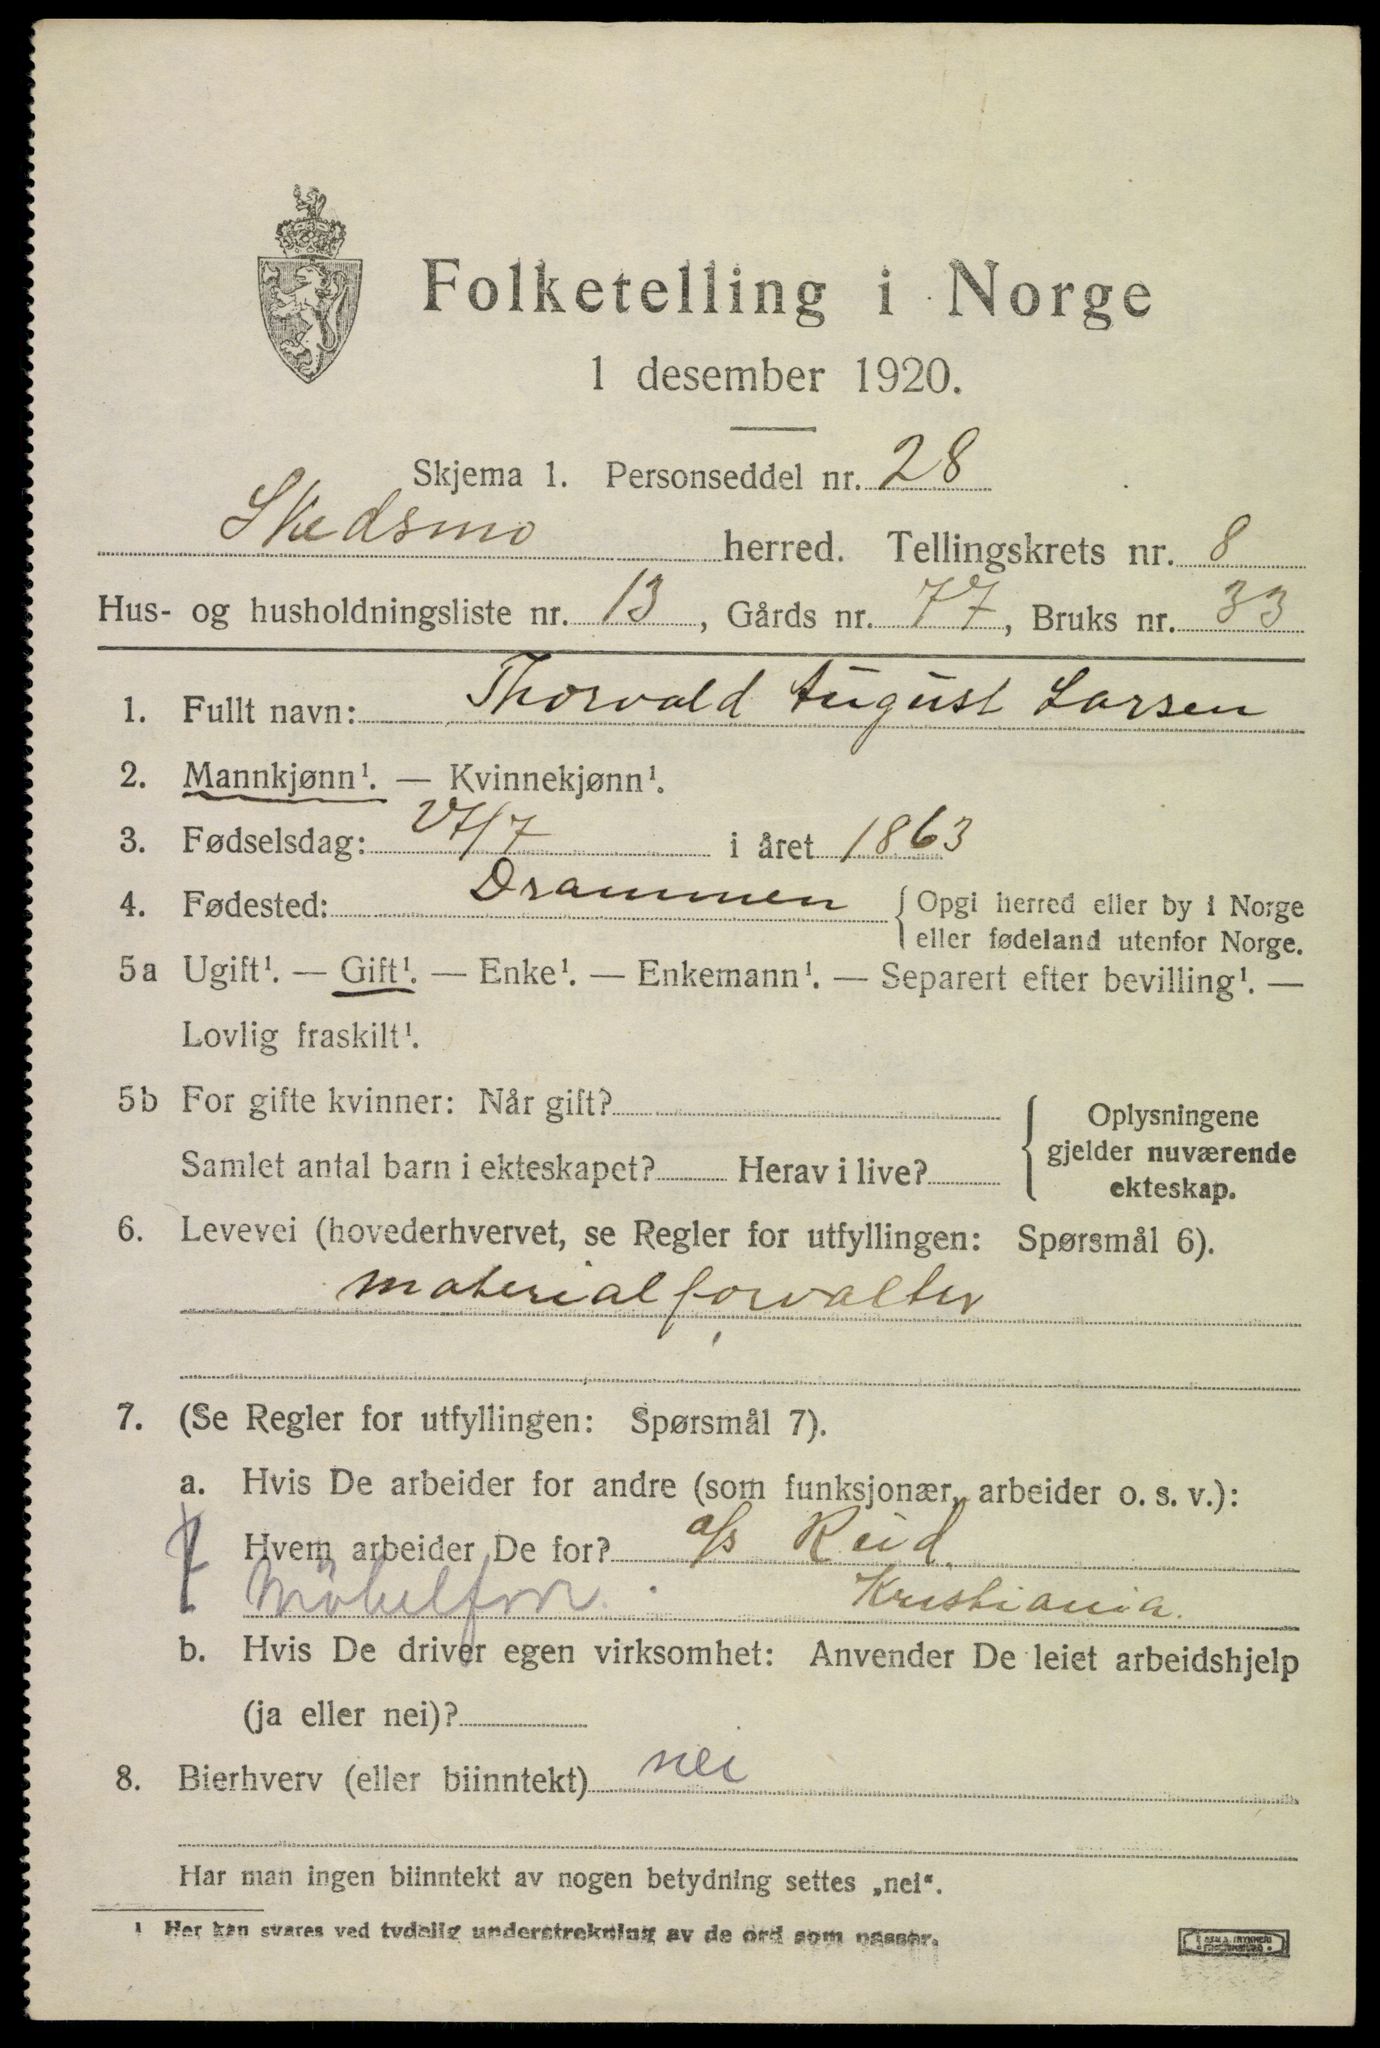 Folketelling i Norge
1 desember 1920.
Skjema 1. Personseddel nr. 28
Skedsmo herred. Tellingskrets nr. 8
Hus- og husholdningsliste nr. 13, Gårds nr. 77, Bruks nr. 33
1. Fullt navn: Thorvald August Larsen
2. Mannkjønn¹. — Kvinnekjønn¹.
3. Fødselsdag: 27/7 i året 1863
4. Fødested: Drammen { Opgi herred eller by i Norge
eller fødeland utenfor Norge.
5a Ugift¹. — Gift¹. — Enke¹. — Enkemann¹. — Separert efter bevilling¹. —
Lovlig fraskilt¹.
5b For gifte kvinner: Når gift?
Samlet antal barn i ekteskapet? Herav i live?
Oplysningene
gjelder nuværende
ekteskap.
6. Levevei (hovederhvervet, se Regler for utfyllingen: Spørsmål 6).
materialforvalter
7. (Se Regler for utfyllingen: Spørsmål 7).
a. Hvis De arbeider for andre (som funksjonær, arbeider o. s. v.):
Hvem arbeider De for? a/s Reid
Möbelforr. Kristiania.
b. Hvis De driver egen virksomhet: Anvender De leiet arbeidshjelp
(ja eller nei)?
8. Bierhverv (eller biinntekt) nei
Har man ingen biinntekt av nogen betydning settes „nei“.
¹ Her kan svares ved tydelig understrekning av de ord som passer.